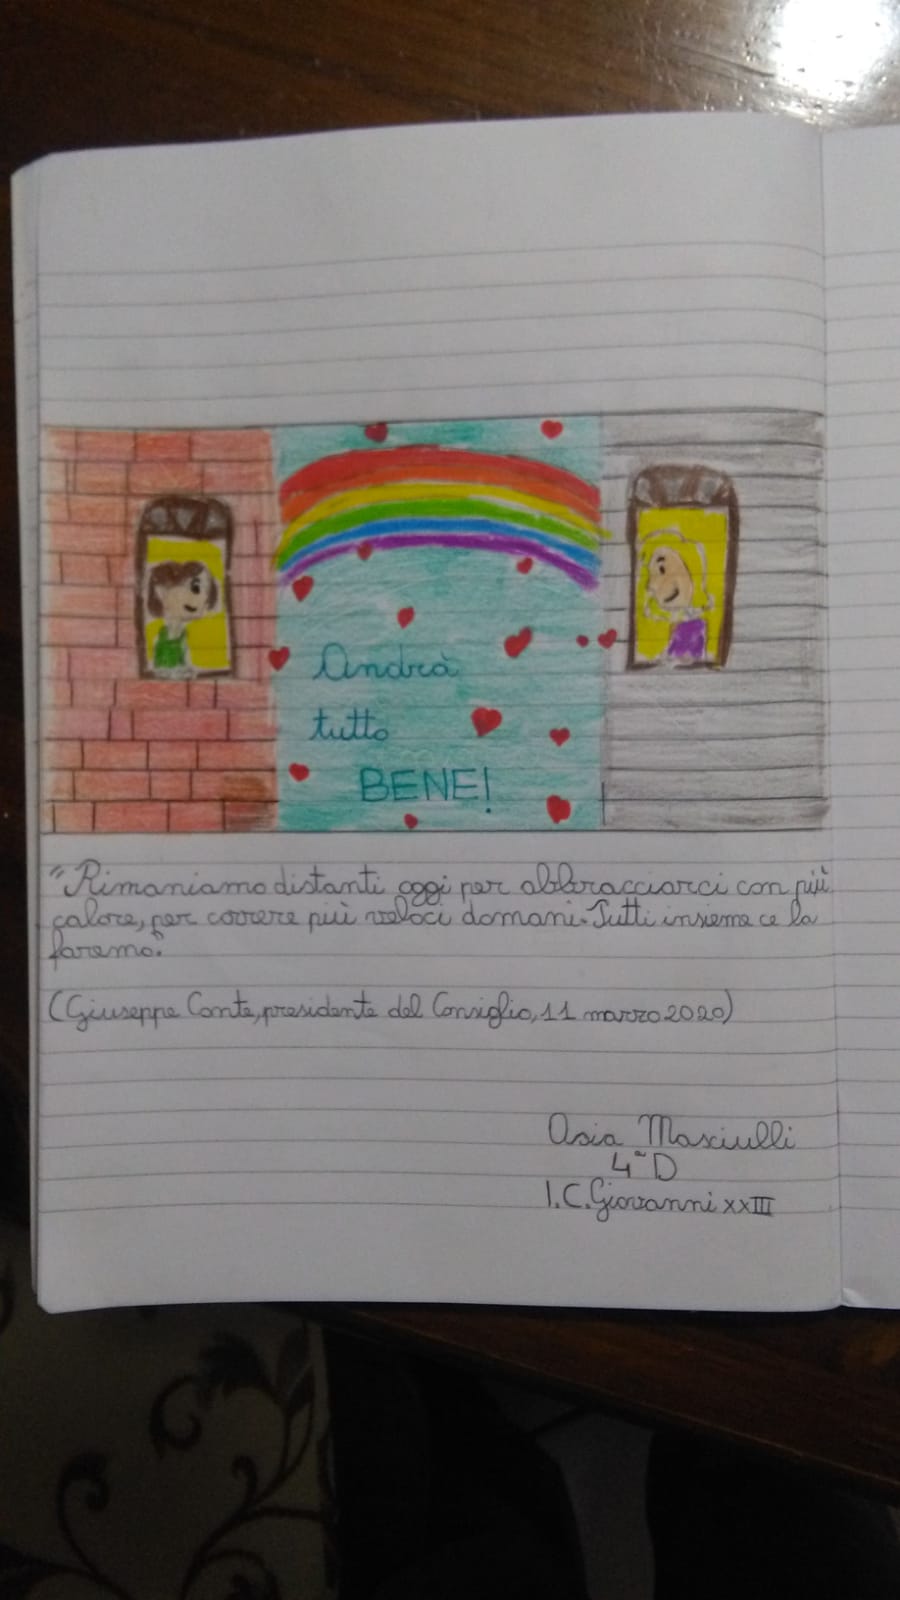 Andrà
tutto
BENE!
"Rimaniamo distanti oggi per abbracciarci con più
calore, per correre più veloci domani. Tutti insieme ce la
faremo".
(Giuseppe Conte, presidente del Consiglio, 11 marzo 2020)
Asia Masciulli
4ª D
I.C. Giovanni XXIII